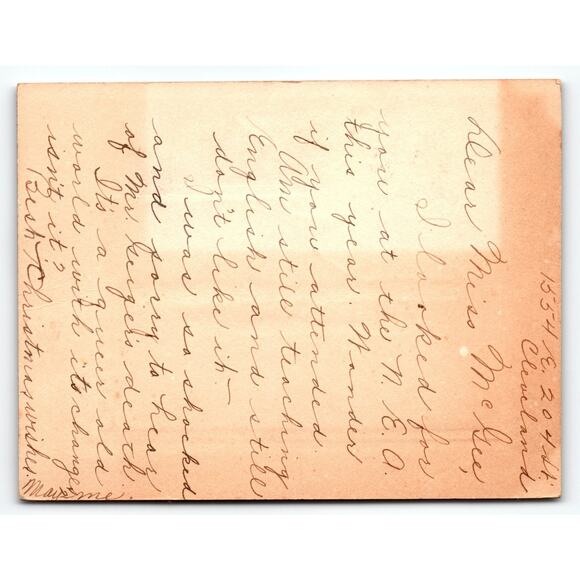 1554 E. 204 St.
Cleveland
Dear Miss McGee,
I looked for
you at the N. E. A.
this year. Wonder
if you attended.
Am still teaching
English and still
don't like it—
I was so shocked
and sorry to hear
of Mr. Geiger's death
It's a queer old
world with its changes
isn't it?
Best Christmas wishes.
Mayme.